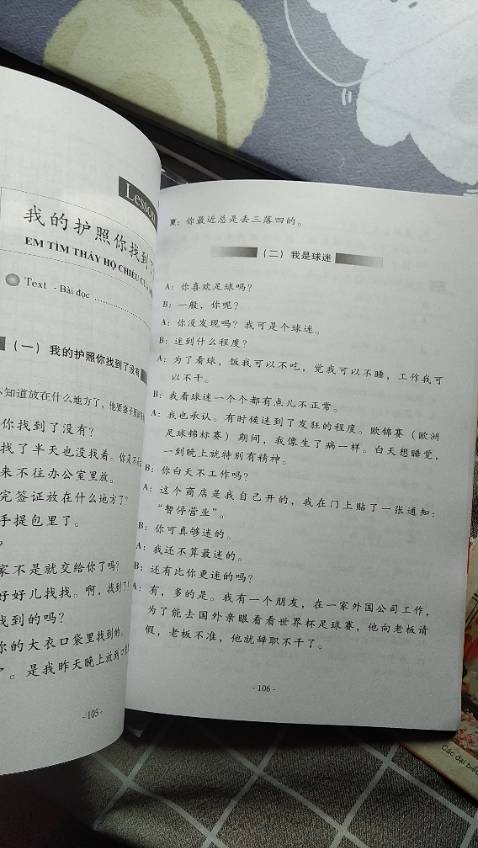 Lesson
我的护照你找到
EM TÌM THẤY HỘ CHIẾU
Text - Bài đọc
（一）我的护照你找到了没有
不知道放在什么地方了，他要
你找到了没有？
找了半天也没找着。你
来不往办公室里放。
完签证放在什么地方了？
手提包里了。
？
家不是就交给你了吗？
好好儿找找。啊，找到了！
找到的吗？
你的大衣口袋里找到的。
。是我昨天晚上放到
-105-
夏：你最近总是丢三落四的。
（二）我是球迷
A：你喜欢足球吗？
B：一般，你呢？
A：你没发现吗？我可是个球迷。
B：迷到什么程度？
A：为了看球，饭我可以不吃，觉我可以不睡，工作我可
以不干。
B：我看球迷一个个都有点儿不正常。
A：我也承认。有时候迷到了发狂的程度。欧锦赛（欧洲
足球锦标赛）期间，我像生了病一样。白天想睡觉，
一到晚上就特别有精神。
B：你白天不工作吗？
A：这个商店是我自己开的，我在门上贴了一张通知：
“暂停营业”。
B：你可真够迷的。
A：我还不算最迷的。
B：还有比你更迷的吗？
A：有，多的是。我有一个朋友，在一家外国公司工作，
为了能去国外亲眼看看世界杯足球赛，他向老板请
假，老板不准，他就辞职不干了。
-106-
Các đại biểu